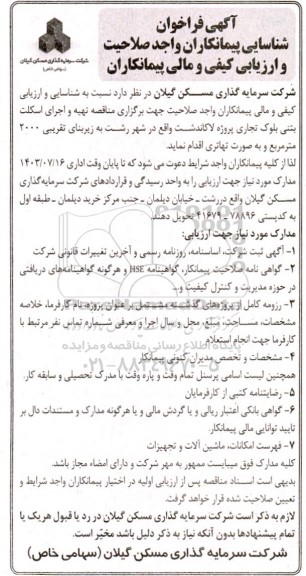 آگهی فراخوان
شناسایی پیمانکاران واجد صلاحیت
و ارزیابی کیفی و مالی پیمانکاران
شرکت سرمایه گذاری مسکن گیلان
(سهامی خاص)
شرکت سرمایه گذاری مسکن گیلان در نظر دارد نسبت به شناسایی و ارزیابی
کیفی و مالی پیمانکاران واجد صلاحیت جهت برگزاری مناقصه تهیه و اجرای اسکلت
بتنی بلوک تجاری پروژه لاکاندشت واقع در شهر رشت به زیربنای تقریبی ۲۰۰۰
مترمربع و به صورت تهاتری اقدام نماید.
لذا از کلیه پیمانکاران واجد شرایط دعوت می شود که تا پایان وقت اداری ۱۴۰۳/۰۷/۱۶
مدارک مورد نیاز جهت ارزیابی را به واحد رسیدگی و قراردادهای شرکت سرمایه‌گذاری
مسکن گیلان واقع در رشت ـ خیابان دیلمان ـ جنب مرکز خرید دیلمان ـ طبقه اول
به کدپستی ۷۸۸۹۶-۴۱۶۷۹ تحویل دهند.
مدارک مورد نیاز جهت ارزیابی:
۱- آگهی ثبت شرکت، اساسنامه، روزنامه رسمی و آخرین تغییرات قانونی شرکت
۲- گواهی نامه صلاحیت پیمانکار، گواهینامه HSE و هرگونه گواهینامه‌های دریافتی
در حوزه مدیریت و کنترل کیفیت و...
۳- رزومه کامل از پروژه‌های گذشته مشتمل بر عنوان پروژه، نام کارفرما، خلاصه
مشخصات، مساحت، مبلغ، محل و سال اجرا و معرفی شماره تماس نفر مرتبط با
کارفرما جهت انجام استعلام
۴- مشخصات و تخصص مدیران کنونی پیمانکار
همچنین لیست اسامی پرسنل تمام وقت و پاره وقت با مدرک تحصیلی و سابقه کار.
۵- رضایتنامه کتبی از کارفرمایان
۶- گواهی بانکی اعتبار ریالی و یا گردش مالی و یا هرگونه مدارک و مستندات دال بر
تایید توانایی مالی پیمانکار.
۷- فهرست امکانات، ماشین آلات و تجهیزات
کلیه مدارک فوق میبایست ممهور به مهر شرکت و دارای امضاء مجاز باشد.
بدیهی است اسناد مناقصه پس از ارزیابی اولیه در اختیار پیمانکاران واجد شرایط و
تعیین صلاحیت شده قرار خواهد گرفت.
لازم به ذکر است شرکت سرمایه گذاری مسکن گیلان در رد یا قبول هریک یا
تمام پیشنهادها بدون آنکه نیاز به ذکر دلیل باشد مخیّر است.
شرکت سرمایه گذاری مسکن گیلان (سهامی خاص)